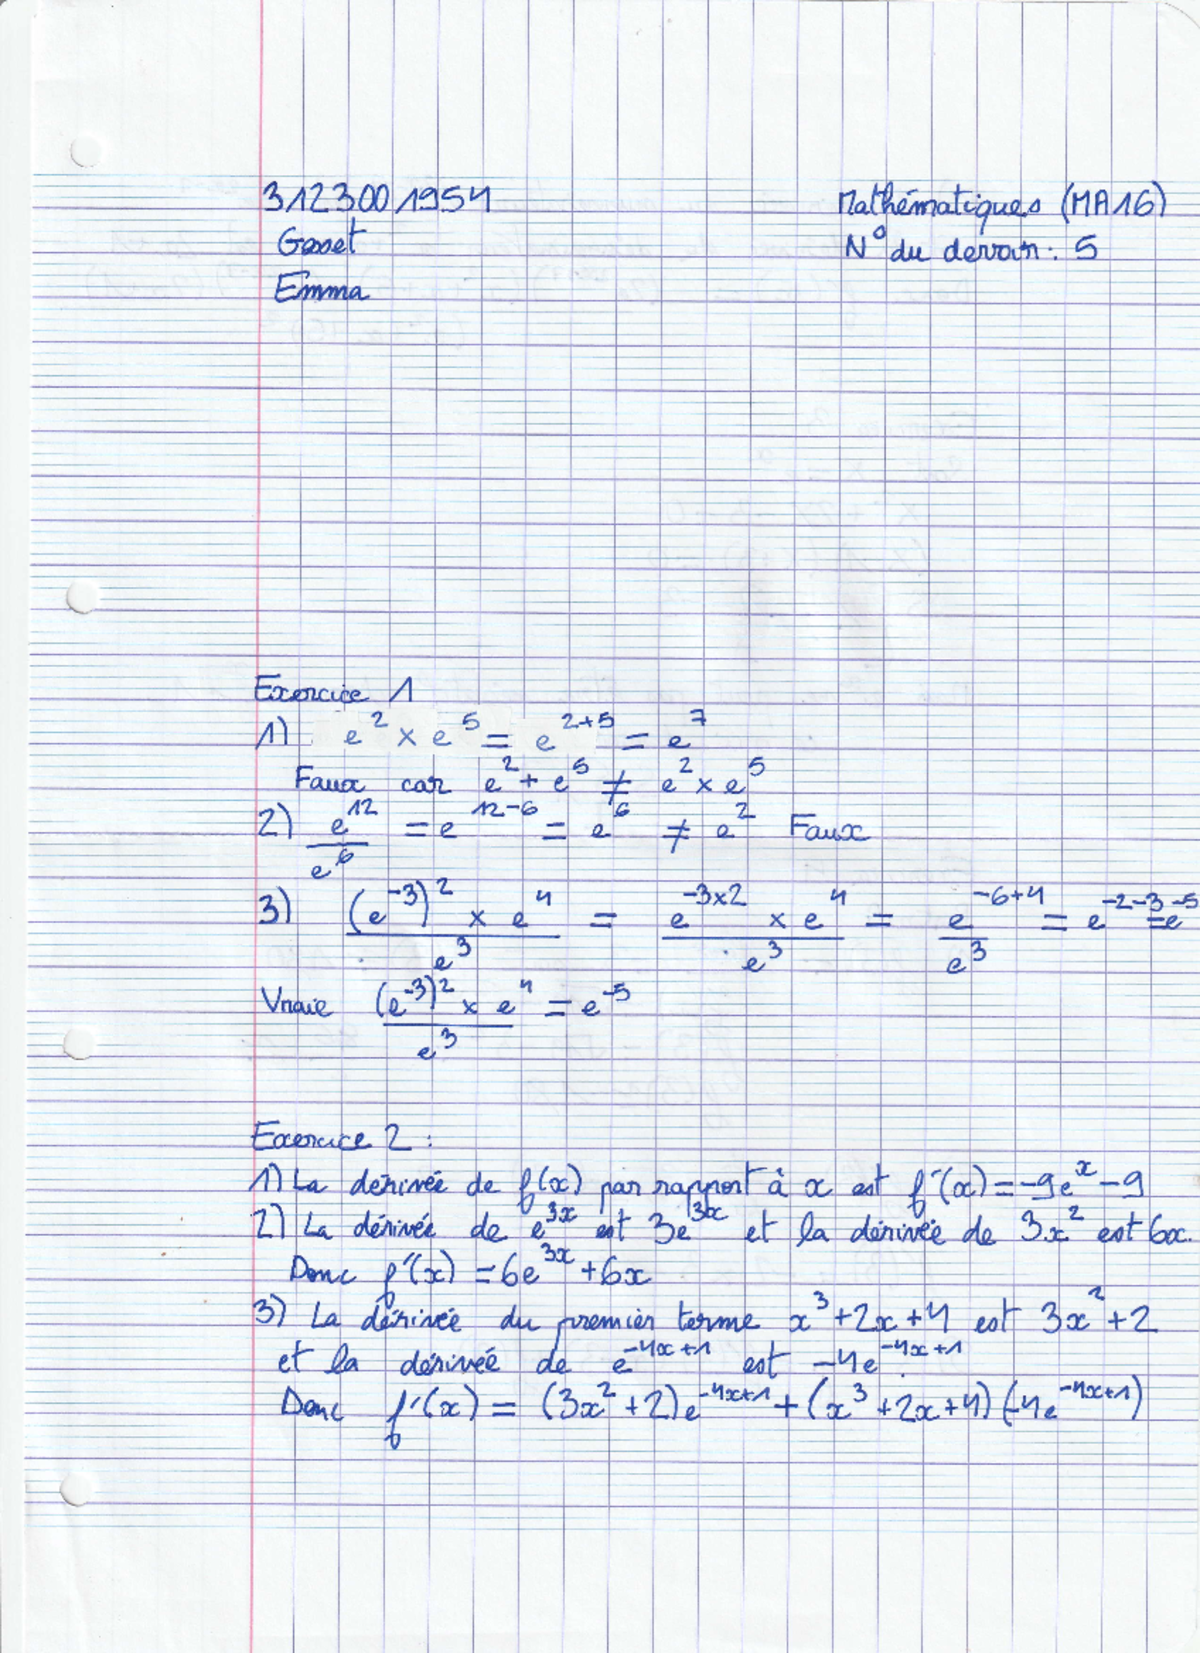 3123001954
Mathématiques (MA16)
Gosset
N° du devoir : 5
Emma
Exercice 1
1) e² × e⁵ = e²⁺⁵ = e⁷
Faux car e² + e⁵ ≠ e² × e⁵
2) e¹²/e⁶ = e¹²⁻⁶ = e⁶ ≠ e² Faux
3) ((e⁻³)² × e⁴)/e³ = (e^(-3×2) × e⁴)/e³ = e⁻⁶⁺⁴/e³ = e⁻²⁻³ = e⁻⁵
Vraie ((e⁻³)² × e⁴)/e³ = e⁻⁵
Exercice 2 :
1) La dérivée de f(x) par rapport à x est f'(x) = -9e^x - 9
2) La dérivée de e^(3x) est 3e^(3x) et la dérivée de 3x² est 6x.
Donc f'(x) = 6e^(3x) + 6x
3) La dérivée du premier terme x³ + 2x + 4 est 3x² + 2
et la dérivée de e^(-4x+1) est -4e^(-4x+1).
Donc f'(x) = (3x² + 2)e^(-4x+1) + (x³ + 2x + 4)(-4e^(-4x+1))